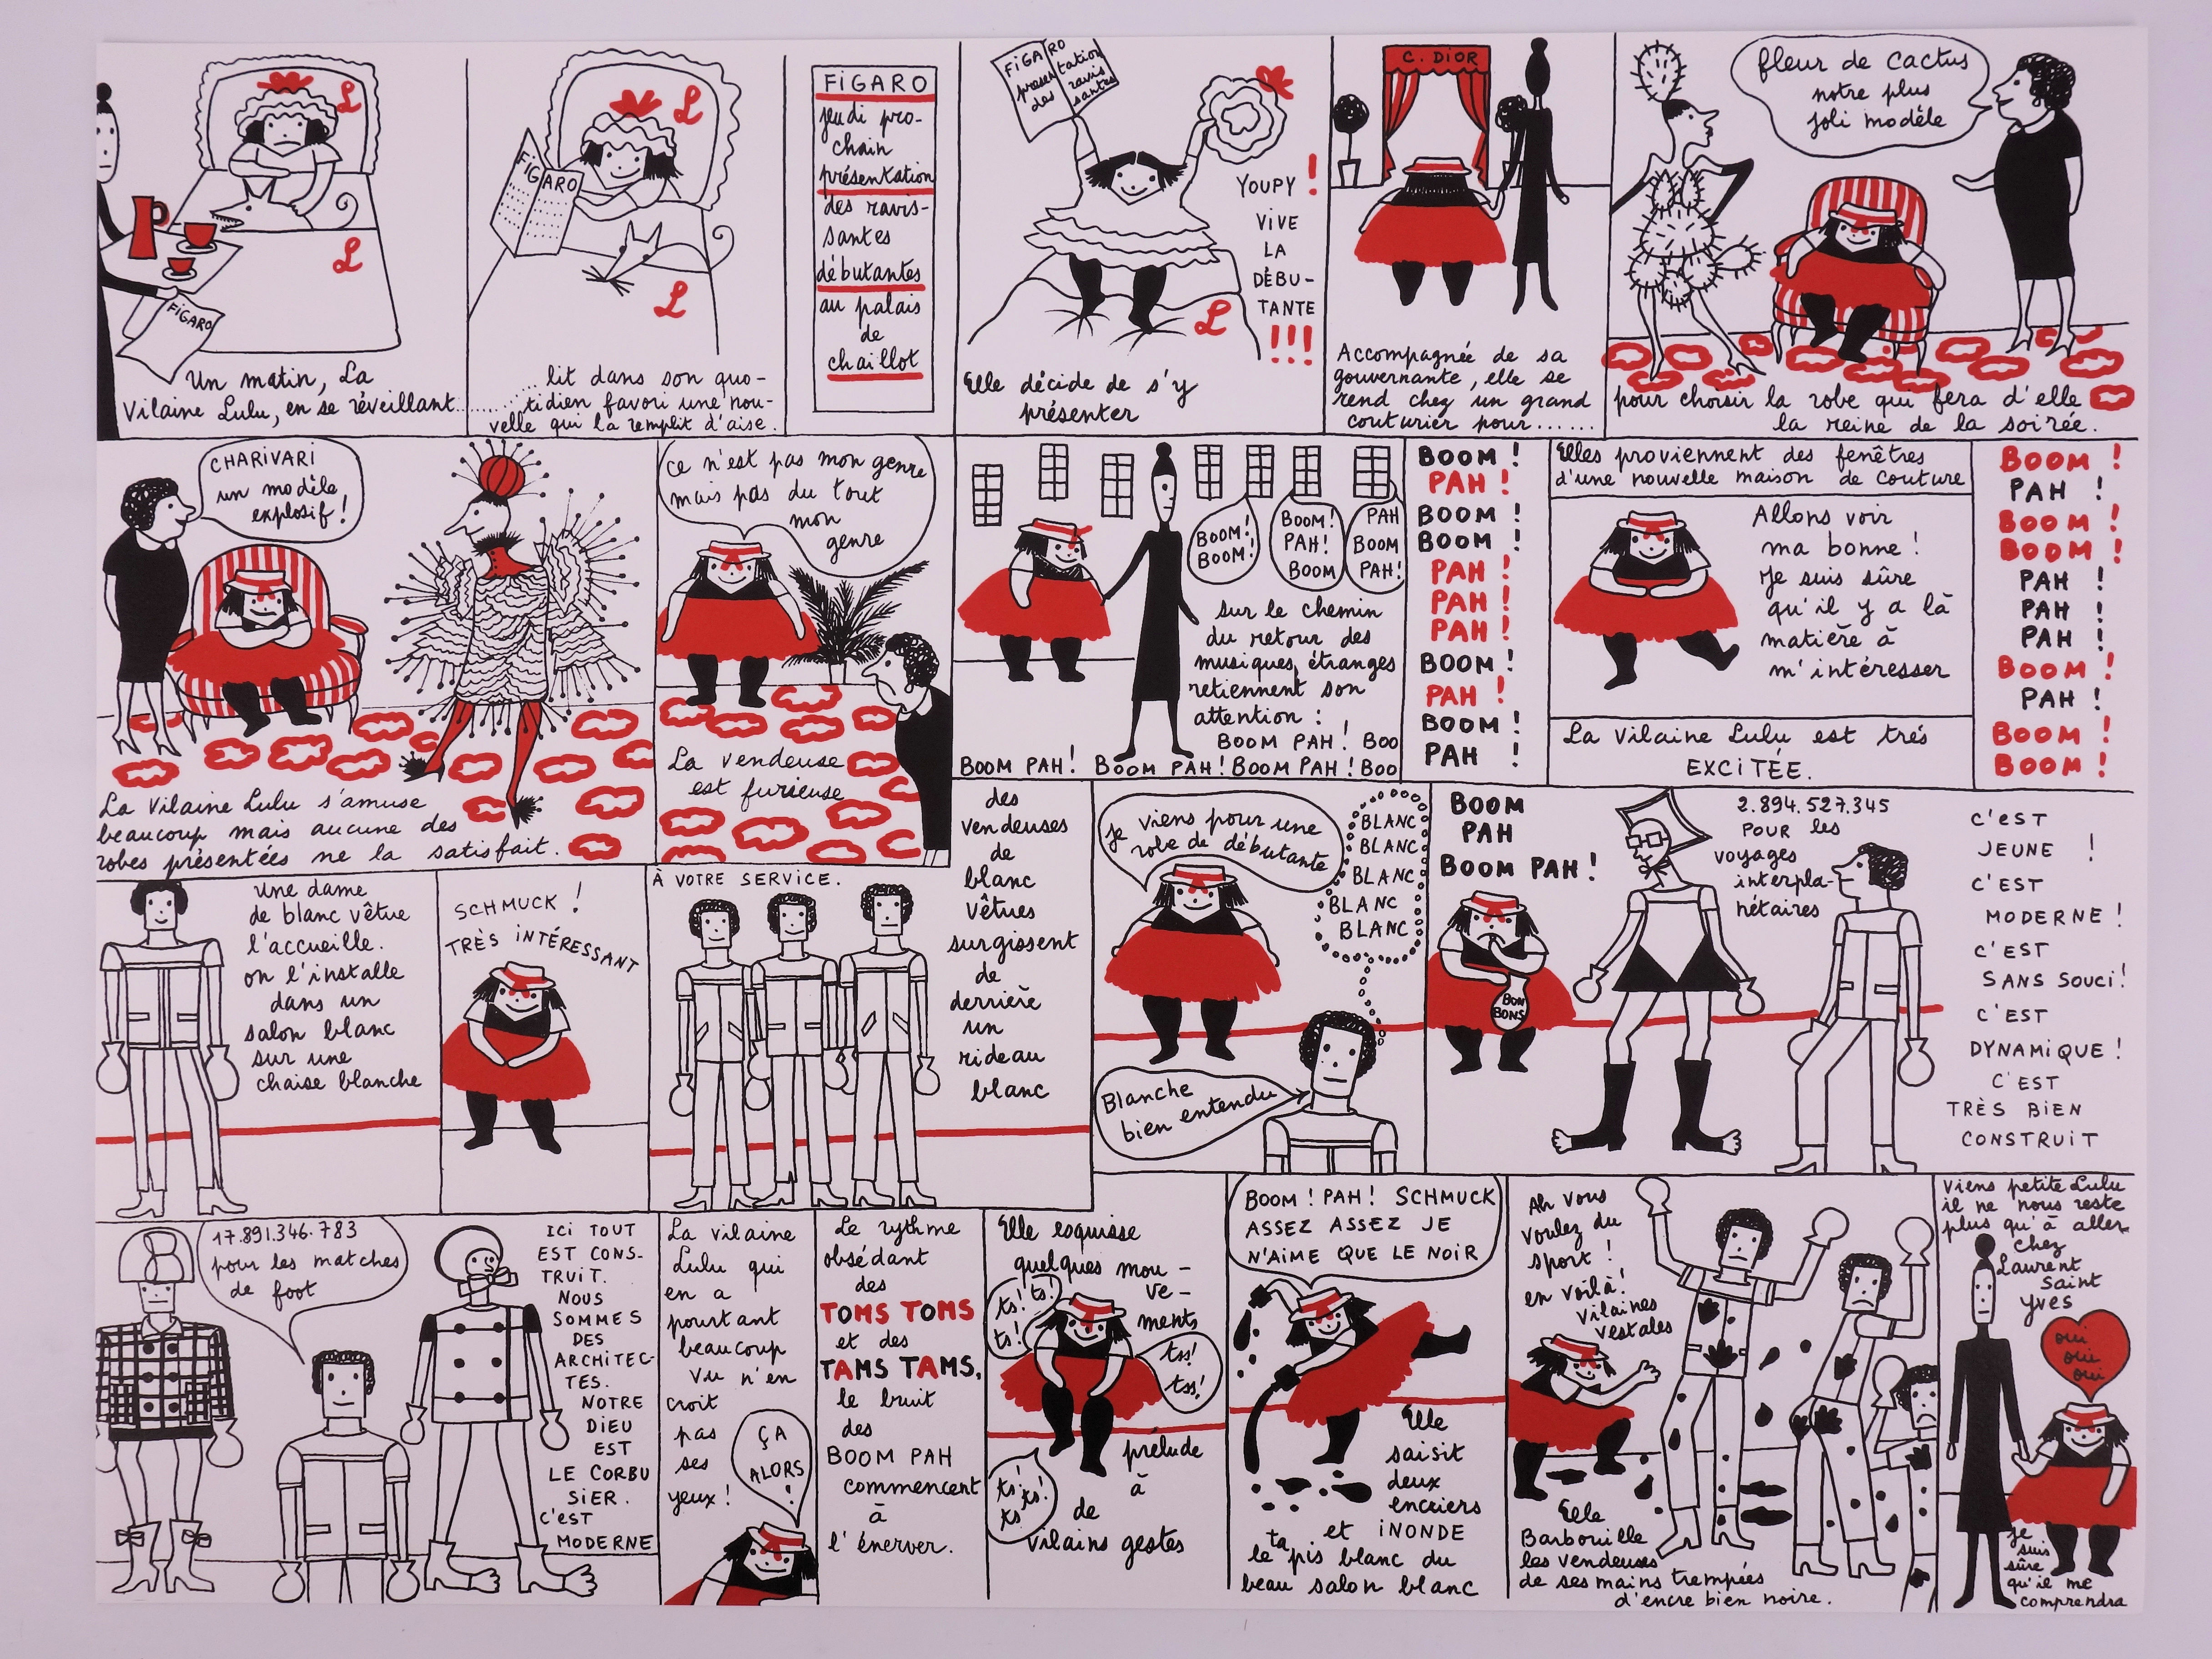 L
L
FiGARO
Un matin, La
Vilaine Lulu, en se réveillant........
L
FiGARO
L
... lit dans son quo-
tidien favori une nou-
velle qui la remplit d'aise.
FiGARO
jeudi pro-
chain
présentation
des ravis-
santes
débutantes
au palais
de
chaillot
FiGARO
presentation
des ravis
santes
YOUPY !
ViVE
LA
DÉBU-
TANTE
!!!
L
Elle décide de s'y
présenter
C. DiOR
Accompagnée de sa
gouvernante, elle se
rend chez un grand
couturier pour......
fleur de cactus
notre plus
joli modèle
pour choisir la robe qui fera d'elle
la reine de la soirée.
CHARiVARi
un modèle
explosif !
La Vilaine Lulu s'amuse
beaucoup mais aucune des
robes présentées ne la satisfait.
ce n'est pas mon genre
mais pas du tout
mon
genre
La vendeuse
est furieuse
BOOM!
BOOM!
BOOM!
PAH!
BOOM
PAH
BOOM
PAH!
sur le chemin
du retour des
musiques étranges
retiennent son
attention :
BOOM PAH! BOO
BOOM PAH! BOOM PAH! BOOM PAH! BOO
BOOM !
PAH !
BOOM !
BOOM !
PAH !
PAH !
PAH !
BOOM !
PAH !
BOOM !
PAH !
Elles proviennent des fenêtres
d'une nouvelle maison de couture
Allons voir
ma bonne !
Je suis sûre
qu'il y a là
matière à
m'intéresser
La Vilaine Lulu est très
EXCiTÉE.
BOOM !
PAH !
BOOM !
BOOM !
PAH !
PAH !
PAH !
BOOM !
PAH !
BOOM !
BOOM !
Une dame
de blanc vêtue
l'accueille.
on l'installe
dans un
salon blanc
sur une
chaise blanche
SCHMUCK !
TRÈS iNTÉRESSANT
À VOTRE SERViCE.
des
vendeuses
de
blanc
vêtues
surgissent
de
derrière
un
rideau
blanc
je viens pour une
robe de débutante
BLANC
BLANC
BLANC
BLANC
BLANC
Blanche
bien entendu
BOOM
PAH
BOOM PAH !
BON
BONS
2.894.527.345
POUR les
voyages
interpla-
nétaires
C'EST
JEUNE !
C'EST
MODERNE !
C'EST
SANS SOUCi !
C'EST
DYNAMiQUE !
C'EST
TRÈS BiEN
CONSTRUiT
17.891.346.783
pour les matches
de foot
iCi TOUT
EST CONS-
TRUiT.
NOUS
SOMMES
DES
ARCHiTEC-
TES.
NOTRE
DiEU
EST
LE CORBU
SiER.
C'EST
MODERNE
La vilaine
Lulu qui
en a
pourtant
beaucoup
vu n'en
croit
pas
ses
yeux !
ÇA
ALORS
!
Le rythme
obsédant
des
TOMS TOMS
et des
TAMS TAMS,
le bruit
des
BOOM PAH
commencent
à
l'énerver.
Elle esquisse
quelques mou-
ve-
ments
ts! ts!
ts!
tss!
tss!
ts!
ts!
ts
prélude
à
de
vilains gestes
BOOM ! PAH ! SCHMUCK
ASSEZ ASSEZ JE
N'AiME QUE LE NOiR
Elle
saisit
deux
encriers
et iNONDE
le tapis blanc du
beau salon blanc
Ah vous
voulez du
sport !
en voilà !
vilaines
vestales
Elle
Barbouille
les vendeuses
de ses mains trempées
d'encre bien noire.
Viens petite Lulu
il ne nous reste
plus qu'à aller
chez
Laurent
Saint
Yves
oui
oui
oui
je
suis
sûre
qu'il me
comprendra